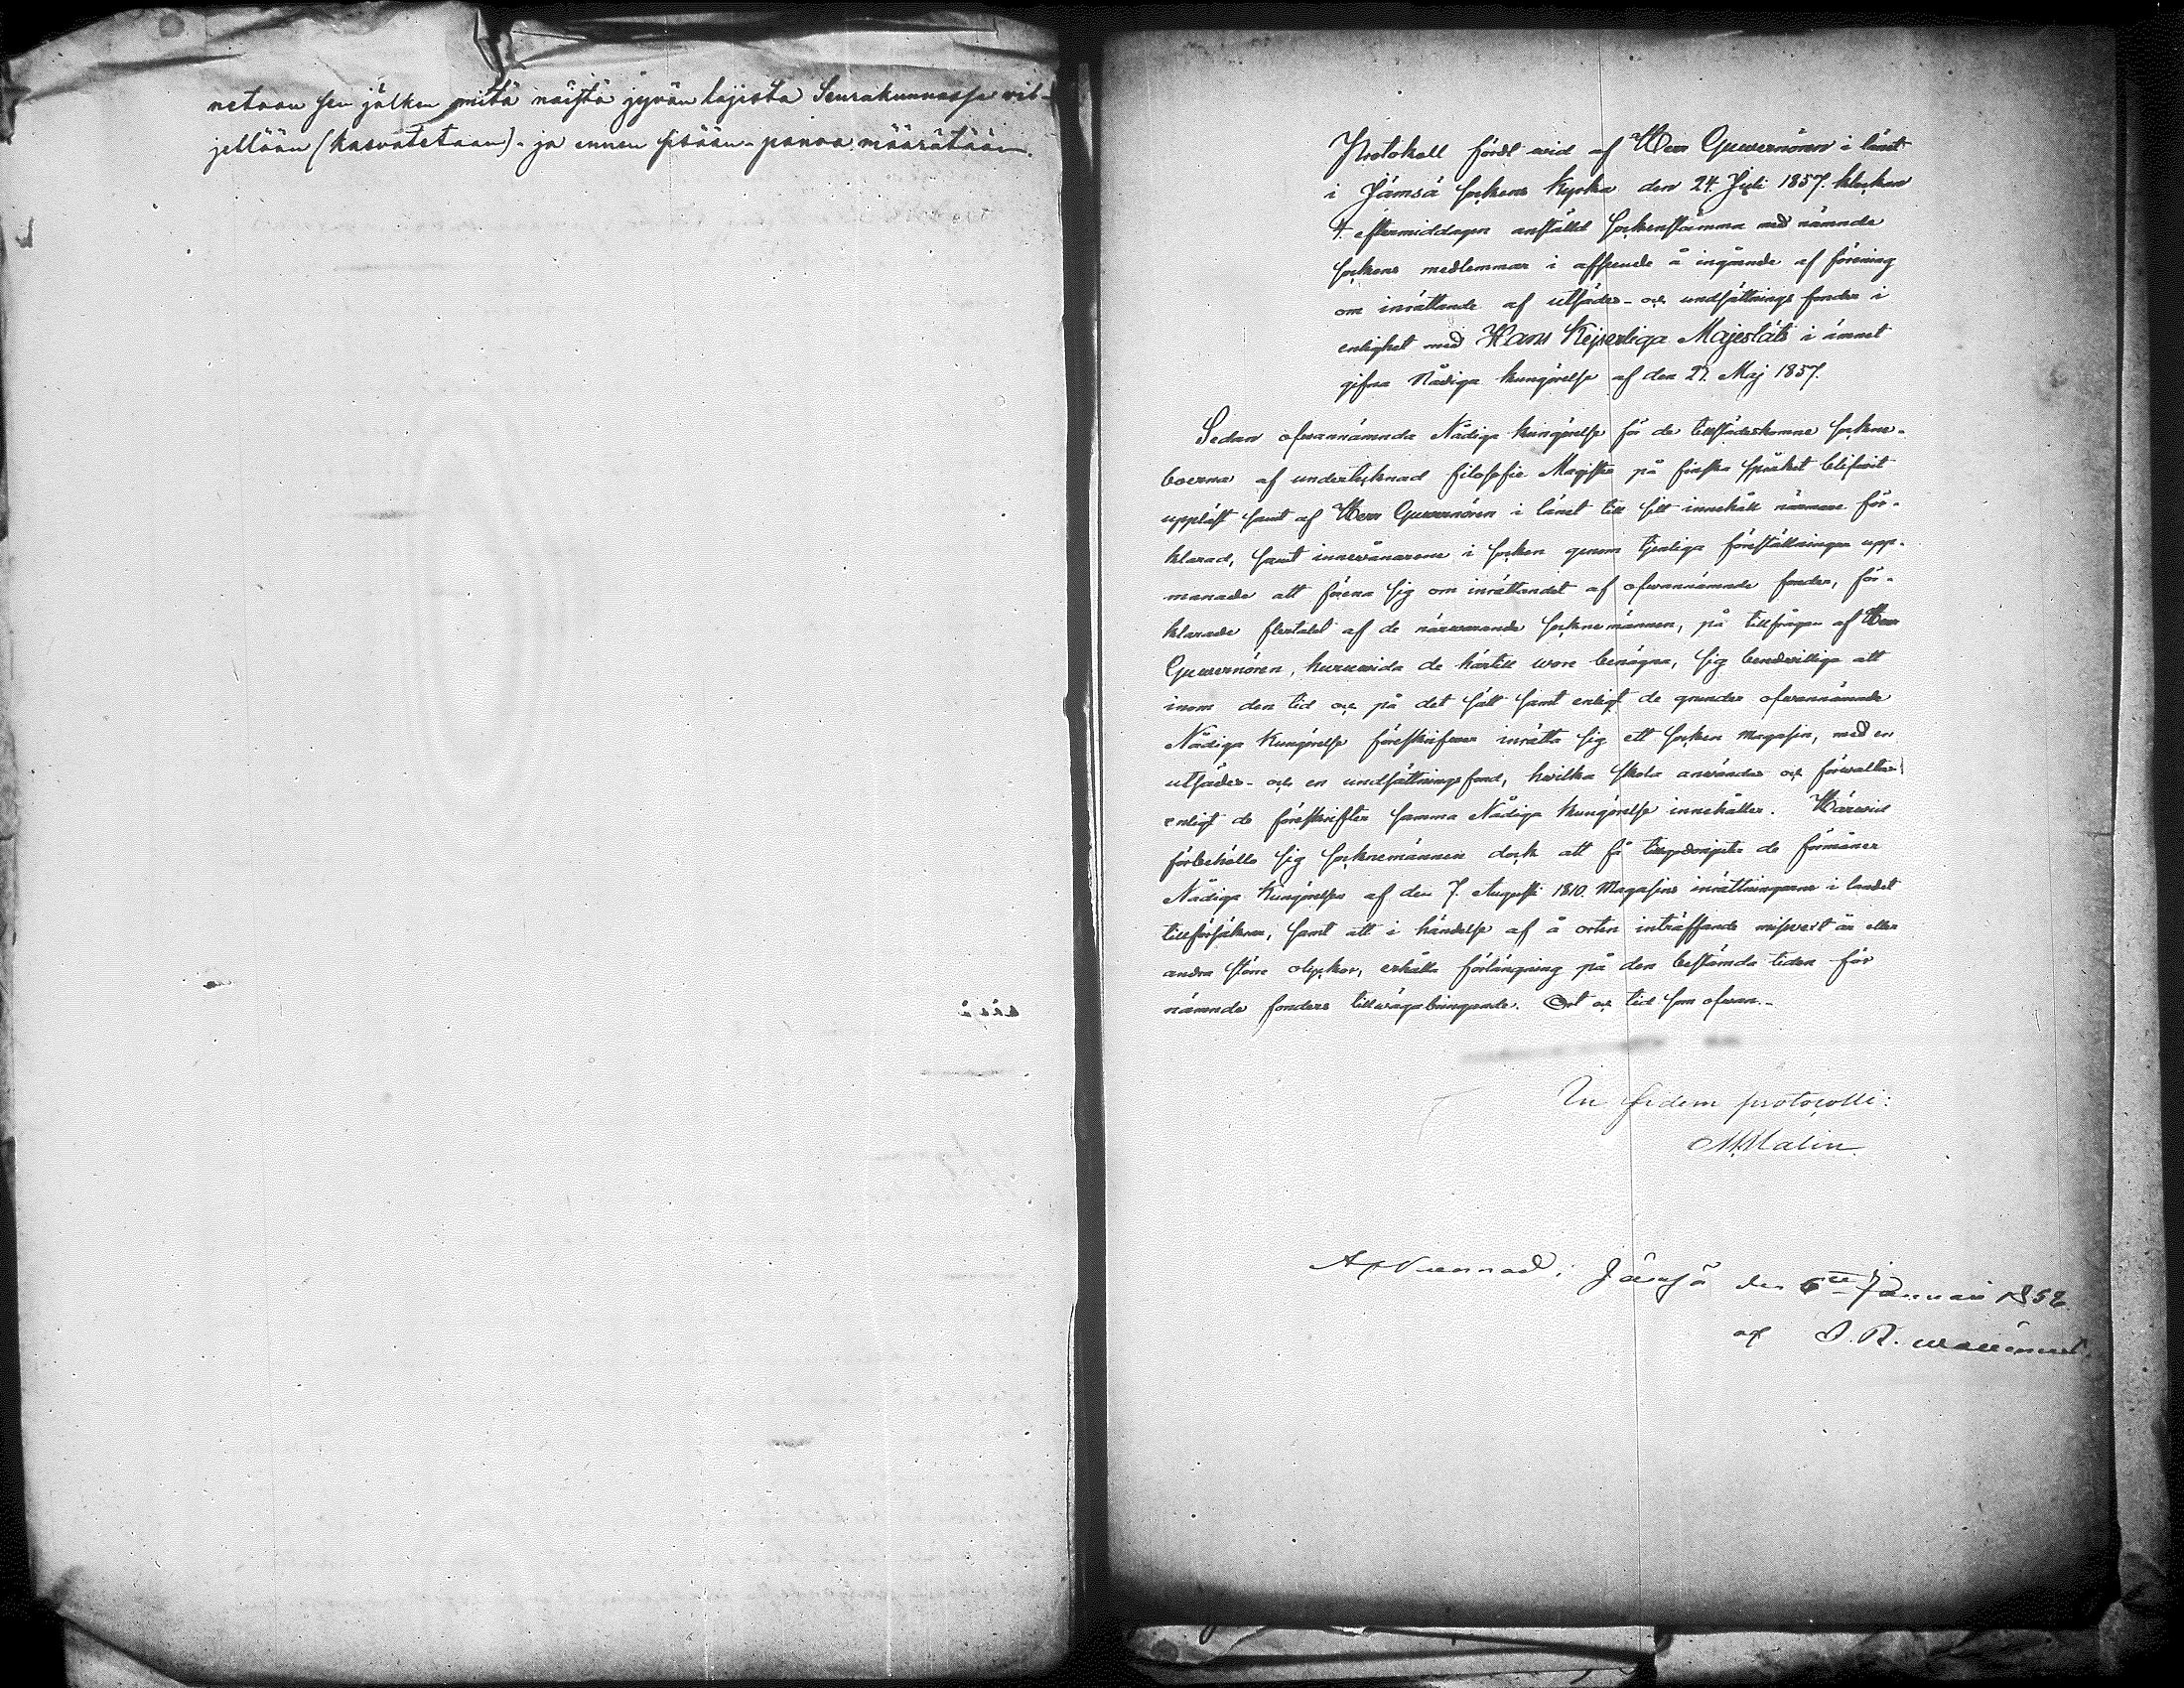 netaan sen jälken mitä näistä jyvän lajista Seurakunnassa vil-
jellään (kasvatetaan) - ja ennen sisään-panoa määrätään.
Protokoll fördt wid af Herr Guvernören i länet
i Jämsä sockens Kyrka den 24. Juli 1857. klockan
4. eftermiddagen anstäld sockenstämma med nämnde
sockens medlemmar i afseende å ingående af förening
om inrättande af utsädes- och undsättnings fonder i
enlighet med Hans Kejserliga Majestäts i ämnet
gifna Nådiga Kungörelse af den 27. Maj 1857.
Sedan ofwannämnda Nådiga kungörelse för de tillstädeskomne sockne-
boerna af undertecknad filosofie Magister på finska språket blifwit
uppläst samt af Herr Guvernören i länet till sitt innehåll närmare för-
klarad, samt innewånarene i socken genom tjenliga föreställningar upp-
manade att förena sig om inrättandet af ofwannämnde fonder, för-
klarade flertalet af de närwarande socknemännen, på tillfrågan af Herr
Guvernören, huruwida de härtill wore benägna, sig benäwilliga att
inom den tid och på det sätt samt enligt de grunder ofwannämnde
Nådiga Kungörelse föreskrifwer inrätta sig ett socken magasin, med en
utsädes- och en undsättnings fond, hwilka skola användas och förwaltas
enligt de föreskrifter samma Nådiga Kungörelse innehåller. Härwid
förbehöllo sig socknemännen dock att få de förmåner
Nådiga Kungörelsen af den 7. Augusti 1810. Magasins inrättningarne i landet
tillförsäkrar, samt att i händelse af å orten inträffande misswext år eller
andra större olyckor, erhålla förlängning på den bestämda tiden för
nämnde fonders tillwägabringande. Ort och tid som ofwan.-
In fidem protocolli:
Malin.
Jämsä den 6te Januari 1858
af